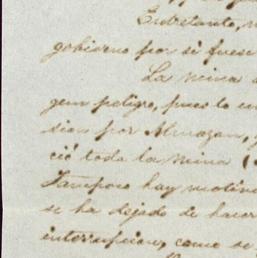 Entretanto,
gobierno por si fuese
La mina
gun peligro, pues lo
sion por Almazan,
ció toda la mina (
Tampoco hay motivo
se ha dejado de hacer
interrupcion, como se